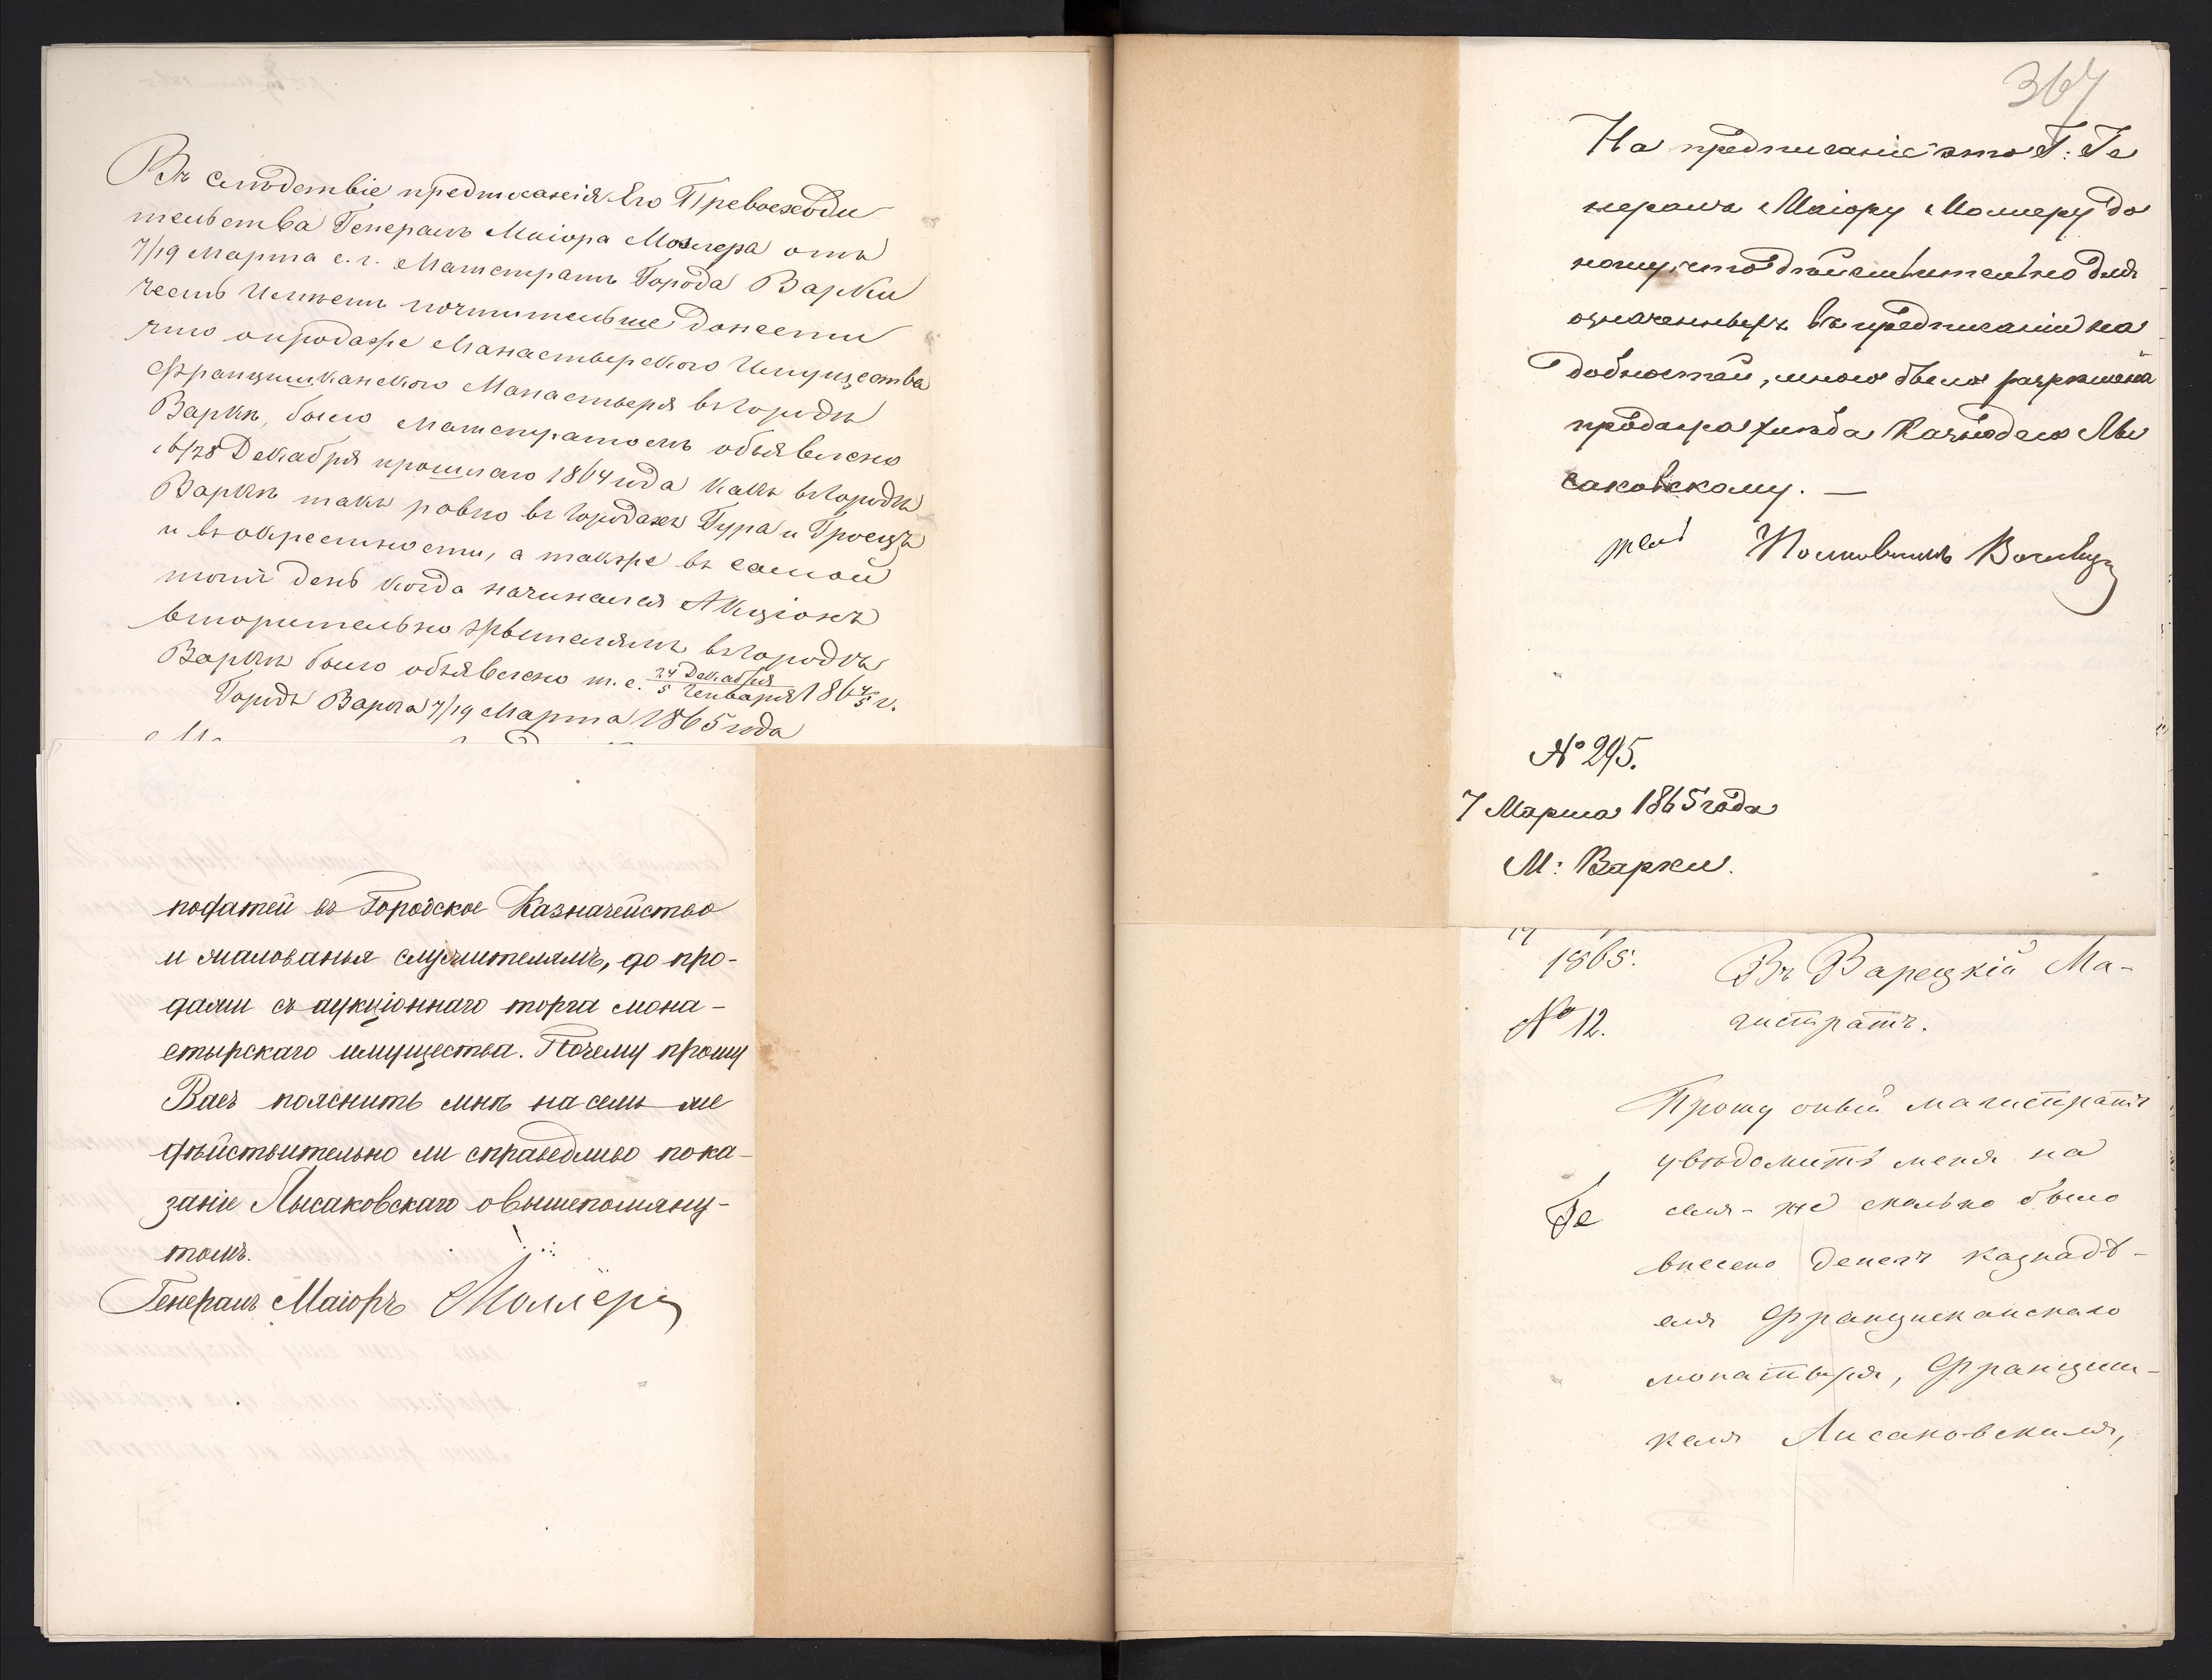 Въ слѣдствіе предписанія Его Превосходи
тельства Генералъ Маіора Моллера отъ
7/19 Марта с. г. Магистратъ Города Варки
честь Имѣетъ почтительнѣе донести
что о продаже Манастырского Имущества
Францишканского Манастыря въ городѣ
Варкѣ, было Магистратомъ объявлено
16/28 Декабря прошлаго 1864 года какъ въ городѣ
Варкѣ такъ ровно въ городахъ Гура и Гроецъ
и въ окрестности, а также въ самой
тотъ день когда начинался Акціонъ
вторительно жытелямъ въ городѣ
Варкѣ было объявлено т. е. 24 Декабря / 5 Генваря 1864/5 г.
Городъ Варка 7/19 Марта 1865 года
податей въ Городское Казначейство
и жалованья служителямъ, до про-
дажи съ аукціоннаго торга мона-
стырскаго имущества. Почему прошу
Васъ пояснить мнѣ на семъ же
дѣйствительно ли справедливо пока-
заніе Лысаковскаго о вышепомяну-
томъ.
Генералъ Маіоръ Моллеръ
367
На предписаніе это Г: Ге
нералъ Маіору Моллеру до
ношу, что дѣйствительно для
означенныхъ въ предписаніи на
добностей, мною было разрѣшена
продажа хлѣба Казнодею Лы
саковскому. —
Полковникъ
№ 295.
7 Марта 1865 года
М: Варки.
1865.
Въ Варецкій Ма-
№ 12.
гистратъ.
Прошу оный магистратъ
увѣдомить меня на
семъ-же сколько было
внесено денегъ казнадѣ-
емъ Францисканскаго
монастыря, Францыш-
комъ Лисаковскимъ,